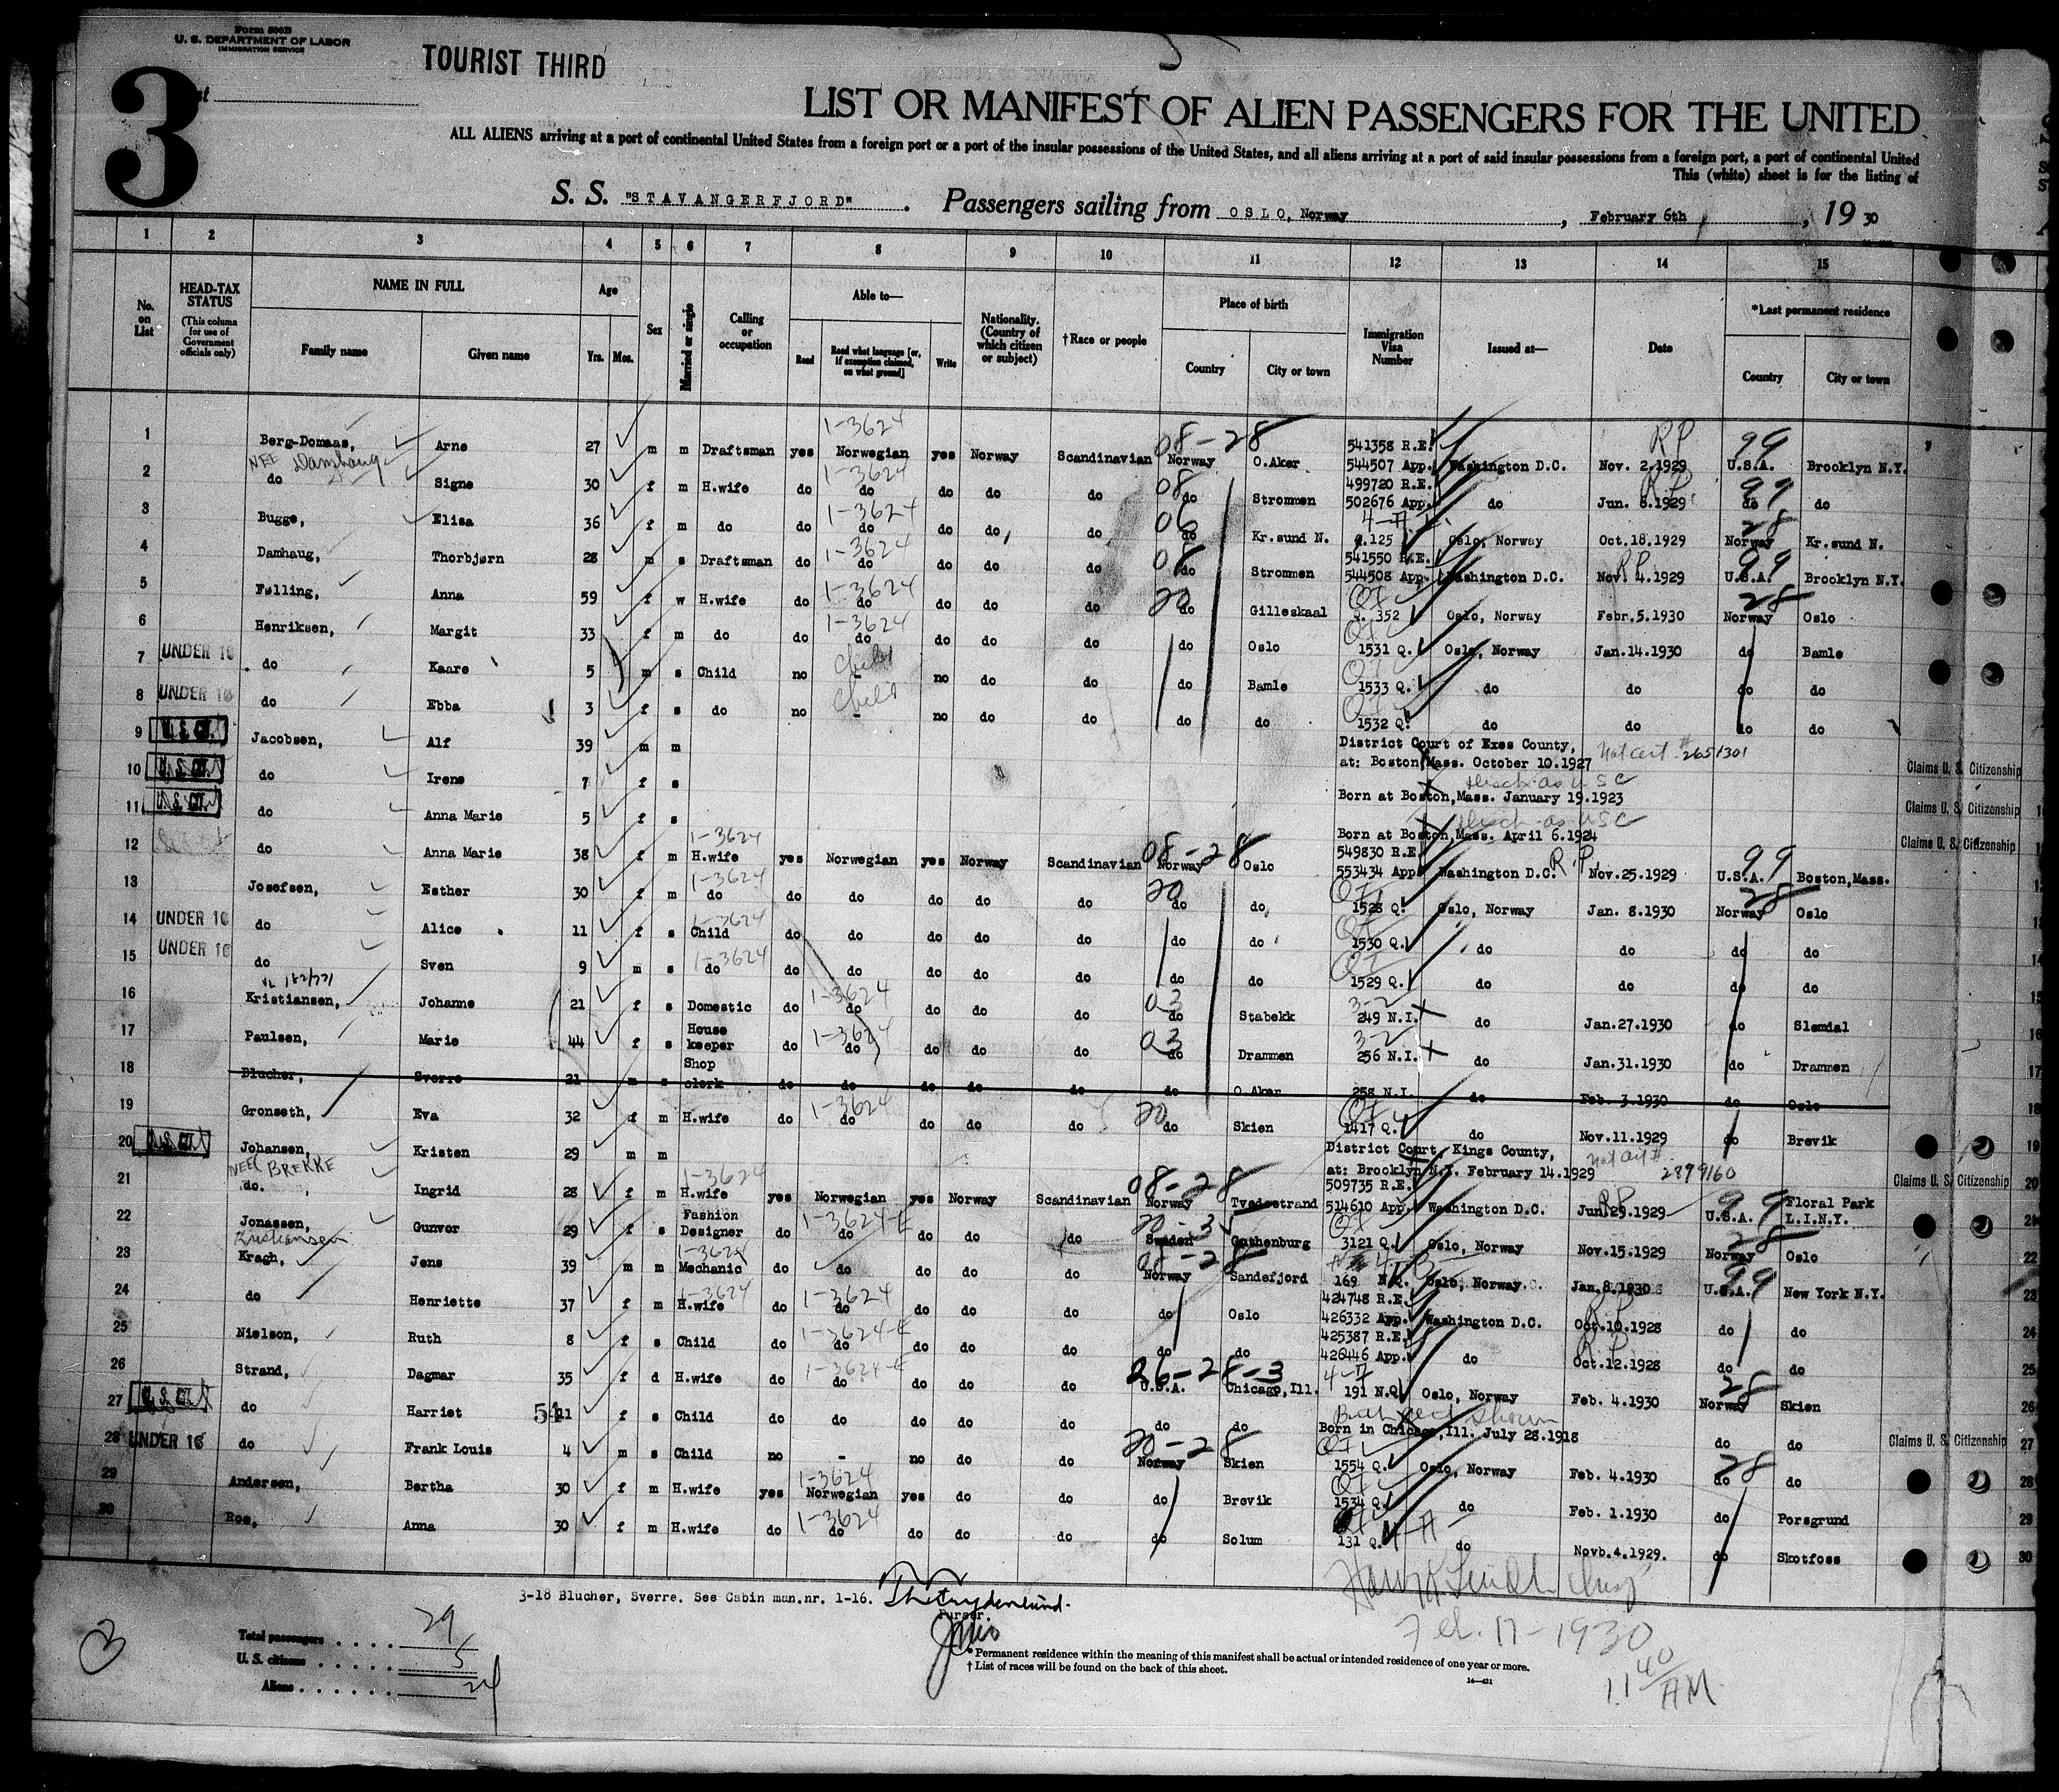 Form 500B
U. S. DEPARTMENT OF LABOR
IMMIGRATION SERVICE
TOURIST THIRD
3
LIST OR MANIFEST OF ALIEN PASSENGERS FOR THE UNITED
ALL ALIENS arriving at a port of continental United States from a foreign port or a port of the insular possessions of the United States, and all aliens arriving at a port of said insular possessions from a foreign port, a port of continental United
This (white) sheet is for the listing of
S. S. "STAVANGERFJORD". Passengers sailing from OSLO, Norway, February 6th, 19 30
1 2 3 4 5 6 7 8 9 10 11 12 13 14 15
No. on List
HEAD-TAX STATUS (This column for use of Government officials only)
NAME IN FULL Family name Given name
Age Yrs. Mos.
Sex
Married or single
Calling or occupation
Able to— Read Read what language [or, if exemption claimed, on what ground] Write
Nationality. (Country of which citizen or subject)
†Race or people
Place of birth Country City or town
Immigration Visa Number
Issued at—
Date
*Last permanent residence Country City or town
1 Berg-Domaas, Arne 27 m m Draftsman yes 1-3624 Norwegian yes Norway Scandinavian 08-28 Norway O.Aker 541358 R.E. 544507 App. Washington D.C. RP Nov. 2.1929 99 U.S.A. Brooklyn N.Y.
2 NEE Damhaug do Signe 30 f m H.wife do 1-3624 do do do do 08 do Strommen 499720 R.E. 502676 App. do RP Jun. 6.1929 99 do do
3 Bugge, Elisa 36 f m do do 1-3624 do do do do 06 do Kr.sund N. 125 Oslo, Norway Oct.18.1929 28 Norway Kr.sund N.
4 Damhaug, Thorbjørn 28 m s Draftsman do 1-3624 do do do do 08 do Strommen 541550 R.E. 544508 App. Washington D.C. RP Nov. 4.1929 99 U.S.A. Brooklyn N.Y.
5 Følling, Anna 59 f w H.wife do 1-3624 do do do do 20 do Gilleskaal Q. 352 Oslo, Norway Febr.5.1930 28 Norway Oslo
6 Henriksen, Margit 33 f m do do 1-3624 do do do do do Oslo 1531 Q. Oslo, Norway Jan.14.1930 do Bamle
7 UNDER 16 do Kaare 5 m s Child no Child - no do do do Bamle 1533 Q. do do do do
8 UNDER 16 do Ebba 3 f s do no Child - no do do do do 1532 Q. do do do do
9 U.S. CIT. Jacobsen, Alf 39 m m District Court of Exes County, at: Boston, Mass. October 10.1927 Nat Cert # 2651301 Claims U. S. Citizenship
10 U.S. CIT. do Irene 7 f s Born at Boston, Mass. January 19.1923 Claims U. S. Citizenship
11 U.S. CIT. do Anna Marie 5 f s Born at Boston, Mass. April 6.1924 Claims U. S. Citizenship
12 do Anna Marie 38 f m 1-3624 H.wife yes Norwegian yes Norway Scandinavian 08-28 Norway Oslo 549830 R.E. 553434 App. Washington D.C. R.P. Nov.25.1929 99 U.S.A. Boston, Mass.
13 Josefsen, Esther 30 f m 1-3624 do do do do do do 20 do do 1528 Q. Oslo, Norway Jan. 8.1930 28 Norway Oslo
14 UNDER 16 do Alice 11 f s 1-3624 Child do do do do do do do 1530 Q. do do do do
15 UNDER 16 do Sven 9 m s 1-3624 do do do do do do do do 1529 Q. do do do do
16 Kristiansen, Johanne 21 f s Domestic do 1-3624 do do do do 03 do Stabekk 3-2 249 N.I. do Jan.27.1930 do Slemdal
17 Paulsen, Marie 44 f s House keeper do 1-3624 do do do do 03 do Drammen 3-2 256 N.I. do Jan.31.1930 do Drammen
18 Blucher, Sverre 21 m s Shop clerk do do do do do do O.Aker 258 N.I. do Feb. 3.1930 do Oslo
19 Gronseth, Eva 32 f m H.wife do 1-3624 do do do do 20 do Skien 1417 Q. do Nov.11.1929 do Brevik
20 U.S. CIT. Johansen, Kristen 29 m m District Court, Kings County, at: Brooklyn N.Y. February 14.1929 Nat Cert # 2879160 Claims U. S. Citizenship
21 NEE BREKKE do. Ingrid 28 f m 1-3624 H.wife yes Norwegian yes Norway Scandinavian 08-28 Norway Tvedestrand 509735 R.E. 514610 App. Washington D.C. RP Jun.29.1929 99 U.S.A. Floral Park L.I.N.Y.
22 Jonassen, Kristiansen Gunvor 29 f s Fashion Designer do 1-3624-E do do do do 20-35 Sweden Gothenburg 3121 Q. Oslo, Norway Nov.15.1929 28 Norway Oslo
23 Kragh, Jens 39 m m 1-3624 Mechanic do do do do do Norway Sandefjord 169 N.Q. Oslo, Norway. Jan.8.1930 99 U.S.A. New York N.Y.
24 do Henriette 37 f m 1-3624 H.wife do 1-3624 do do do do do Oslo 424748 R.E. 426332 App. Washington D.C. RP Oct.10.1928 do do
25 Nielson, Ruth 8 f s Child do 1-3624-E do do do do do do 425387 R.E. 426446 App. do RP Oct.12.1928 do do
26 Strand, Dagmar 35 f d H.wife do 1-3624-E do do do do 26-28-3 U.S.A. Chicago, Ill. 191 N.Q. Oslo, Norway Feb. 4.1930 28 Norway Skien
27 U.S. CIT. do Harriet 11 f s Child do do do do do do do Birth Cert Shown Born in Chicago, Ill. July 28.1918 do do Claims U. S. Citizenship
28 UNDER 16 do Frank Louis 4 m s Child no - no do do 20-28 Norway Skien 1554 Q. Oslo, Norway Feb. 4.1930 28 do do
29 Andersen, Bertha 30 f m H.wife yes 1-3624 Norwegian yes do do do Brevik 1534 Q. do Feb. 1.1930 do Porsgrund
30 Roe, Anna 30 f m H.wife do 1-3624 do do do do do Solum 131 Q. do Novb.4.1929. do Skotfoss
3-18 Blucher, Sverre. See Cabin man.nr. 1-16.
Purser.
Feb. 17-1930
11 40 AM
3
Total passengers . . . . 29
U. S. citizens . . . . . 5
Aliens . . . . . . 24
*Permanent residence within the meaning of this manifest shall be actual or intended residence of one year or more.
†List of races will be found on the back of this sheet.